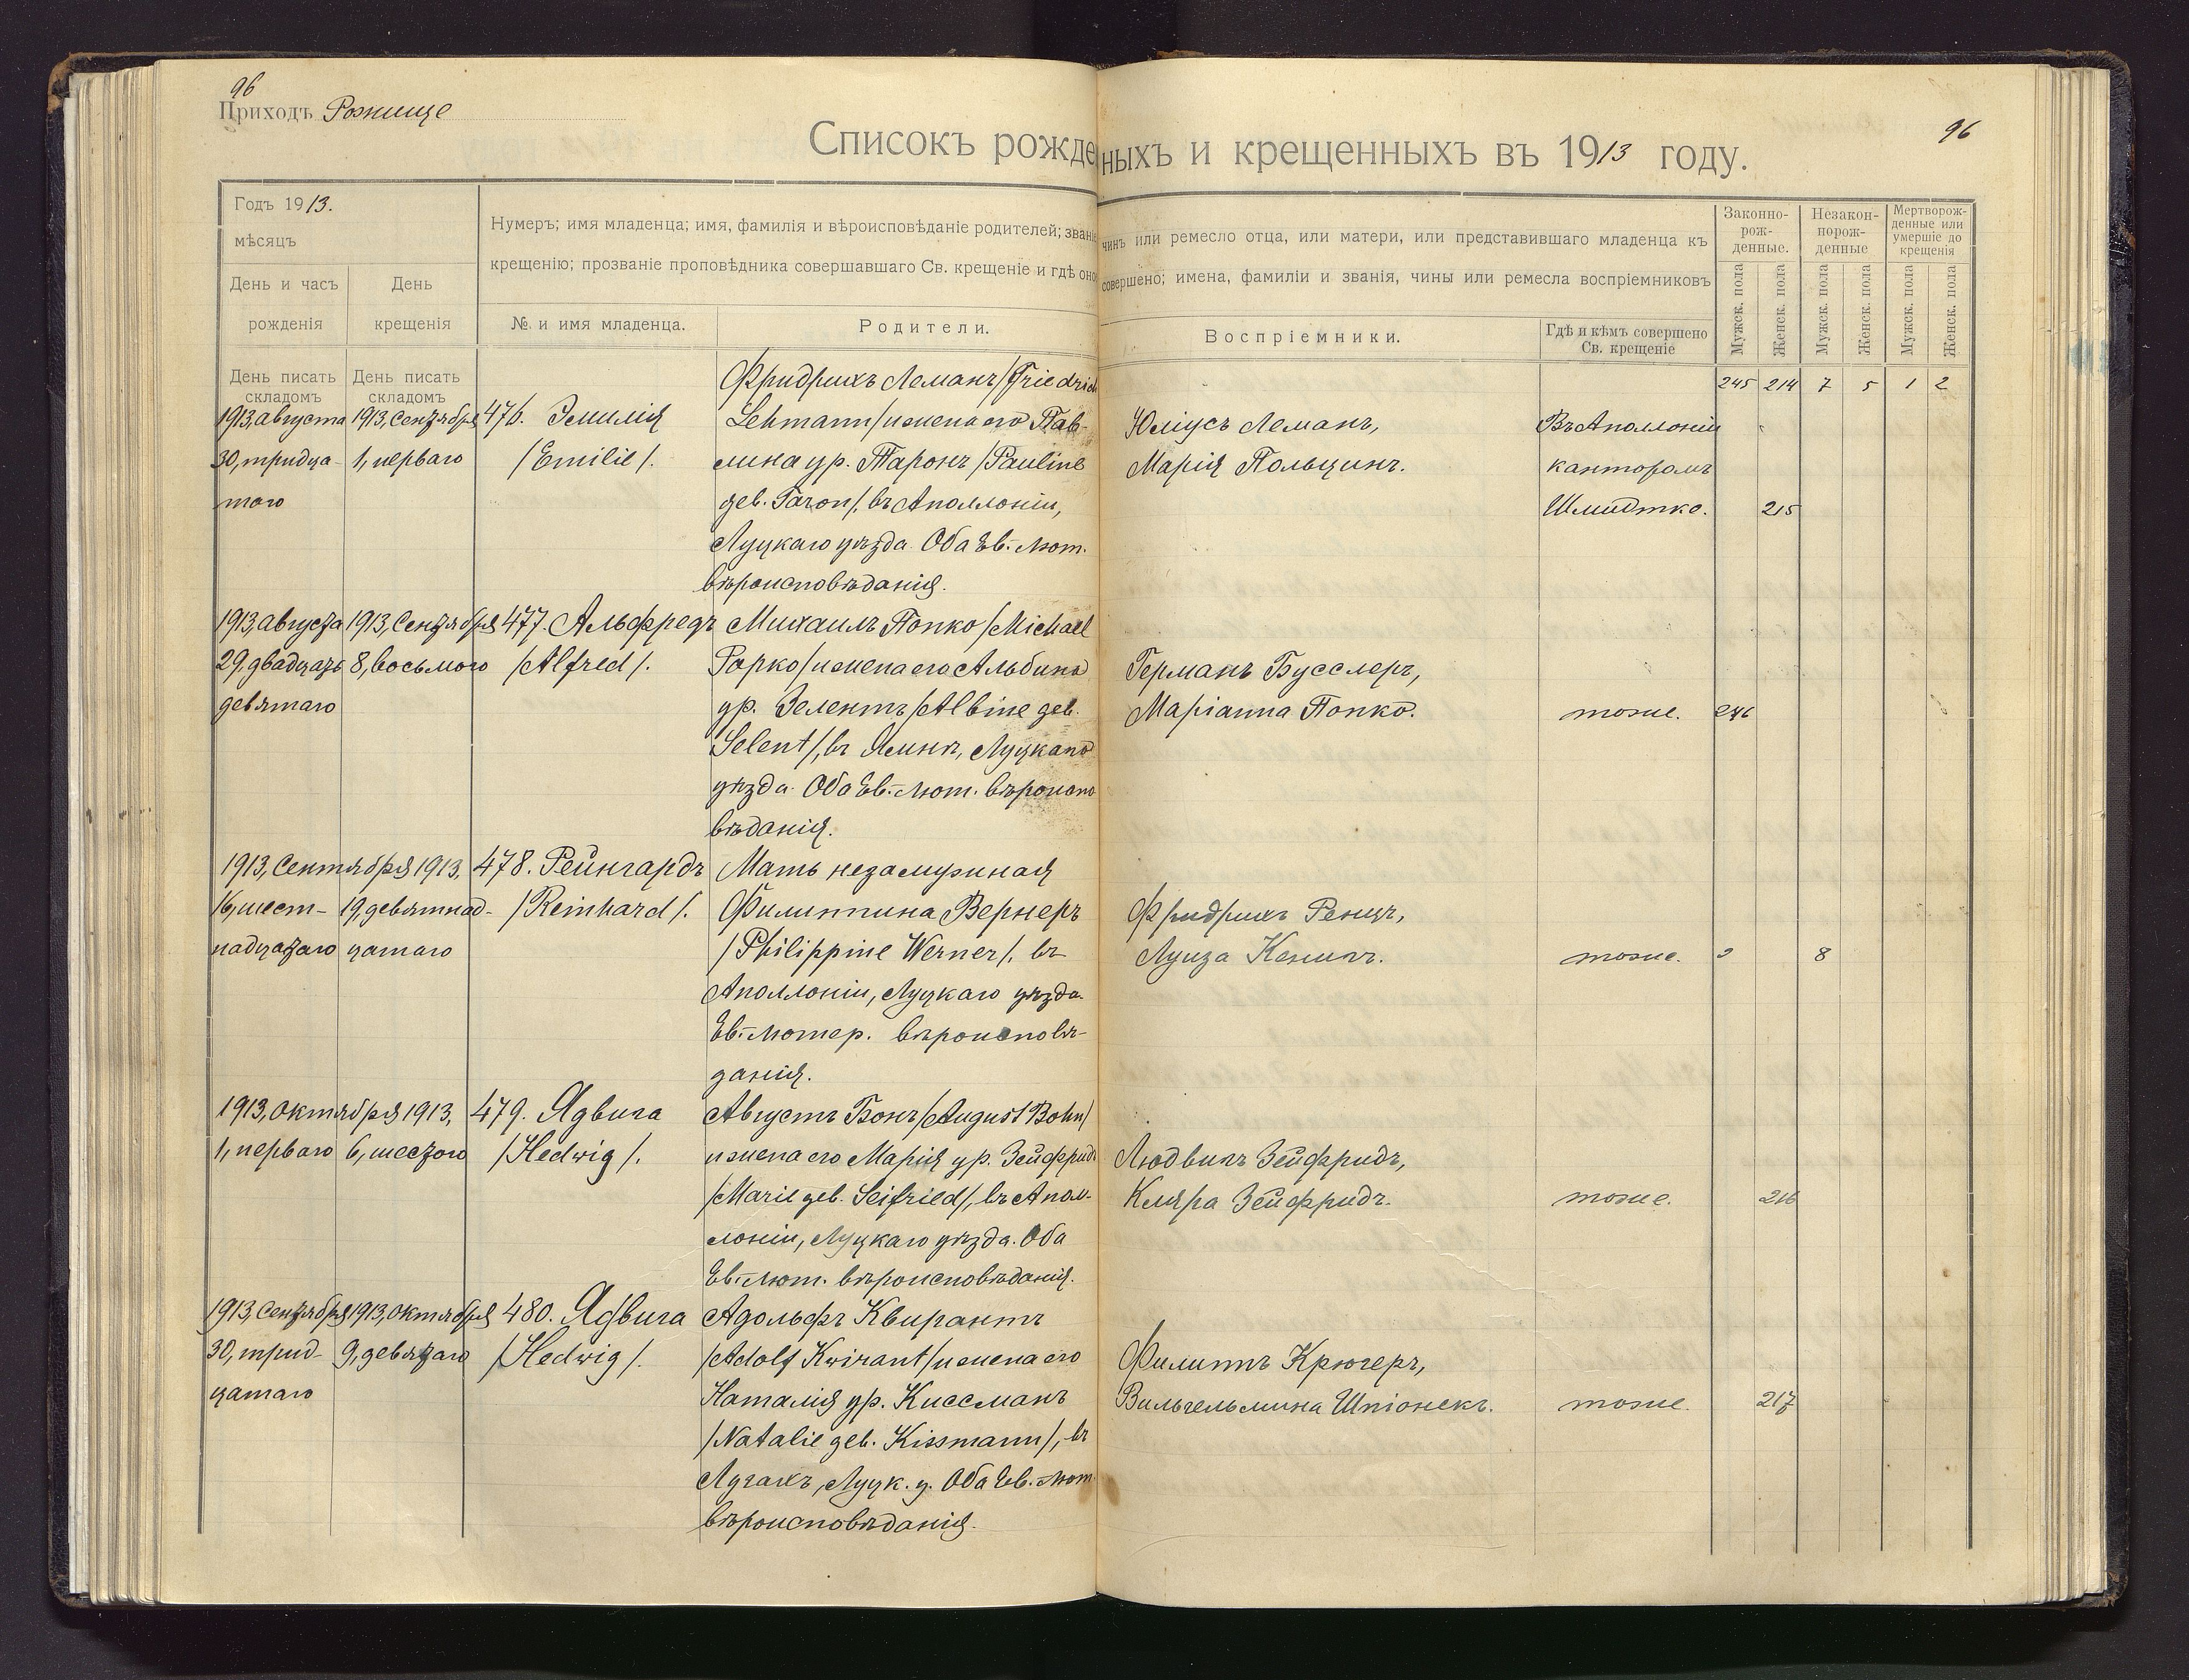 96
Приходъ Рожище
96
Списокъ рожденныхъ и крещенныхъ въ 1913 году.
Годъ 1913.
мѣсяцъ
День и часъ рожденія
День крещенія
Нумеръ; имя младенца; имя, фамилія и вѣроисповѣданіе родителей; званіе чинъ или ремесло отца, или матери, или представившаго младенца къ
крещенію; прозваніе проповѣдника совершавшаго Св. крещеніе и гдѣ оно совершено; имена, фамиліи и званія, чины или ремесла воспріемниковъ
№ и имя младенца.
Родители.
Воспріемники.
Гдѣ и кѣмъ совершено
Св. крещеніе
Законно-
рож-
денные.
Незакон-
порож-
денные
Мертворож-
денные или
умершіе до
крещенія
Мужск. пола
Женск. пола
Мужск. пола
Женск. пола
Мужск. пола
Женск. пола
День писать
складомъ
День писать
складомъ
245 214 7 5 1 2
1913, августа
30, тридца-
таго
1913, Сентября
1, перваго
476. Эмилія
/Emilie/.
Фридрихъ Леманъ /Friedrich
Lehmann/ и жена его Пав-
лина ур. Таронъ /Pauline
geb. Taron/, въ Аполлоніи,
Луцкаго уѣзда. Оба Ев.-Лют.
вѣроисповѣданія.
Юліусъ Леманъ,
Марія Польцинъ.
Въ Аполлоніи
канторомъ
Шмидтке.
215
1913, августа
29, двадцать
девятаго
1913, Сентября
8, восьмого
477. Альфредъ
/Alfred/.
Михаилъ Попко /Michael
Popko/ и жена его Альбина
ур. Зелентъ /Albine geb.
Selent/, въ Ямкѣ, Луцкаго
уѣзда. Оба Ев.-Лют. вѣроиспо
вѣданія.
Германъ Бусслеръ,
Маріанна Попко.
тоже.
246
1913, Сентября
16, шест-
надцатаго
1913,
19, девятнад-
цатаго
478. Рейнгардъ
/Reinhard/.
Мать незамужная
Филиппина Вернеръ
/Philippine Werner/. въ
Аполлоніи, Луцкаго уѣзда.
Ев.-Лютер. вѣроисповѣ-
данія.
Фридрихъ Ренцъ,
Луиза Кенигъ.
тоже.
8
1913, Октября
1, перваго
1913,
6, шестого
479. Ядвига
/Hedwig/.
Августъ Бонъ /August Bohn/
и жена его Марія ур. Зейфридъ
/Marie geb. Seifried/, въ Апол-
лоніи, Луцкаго уѣзда. Оба
Ев.-Лют. вѣроисповѣданія.
Людвигъ Зейфридъ,
Кляра Зейфридъ.
тоже.
216
1913, Сентября
30, трид-
цатаго
1913, Октября
9, девятаго
480. Ядвига
/Hedwig/.
Адольфъ Квирантъ
/Adolf Kwirant/ и жена его
Наталія ур. Киссманъ
/Natalie geb. Kissmann/, въ
Лугахъ, Луцк. у. Оба Ев.-Лют.
вѣроисповѣданія.
Филиппъ Крюгеръ,
Вильгельмина Шпіонекъ.
тоже.
217